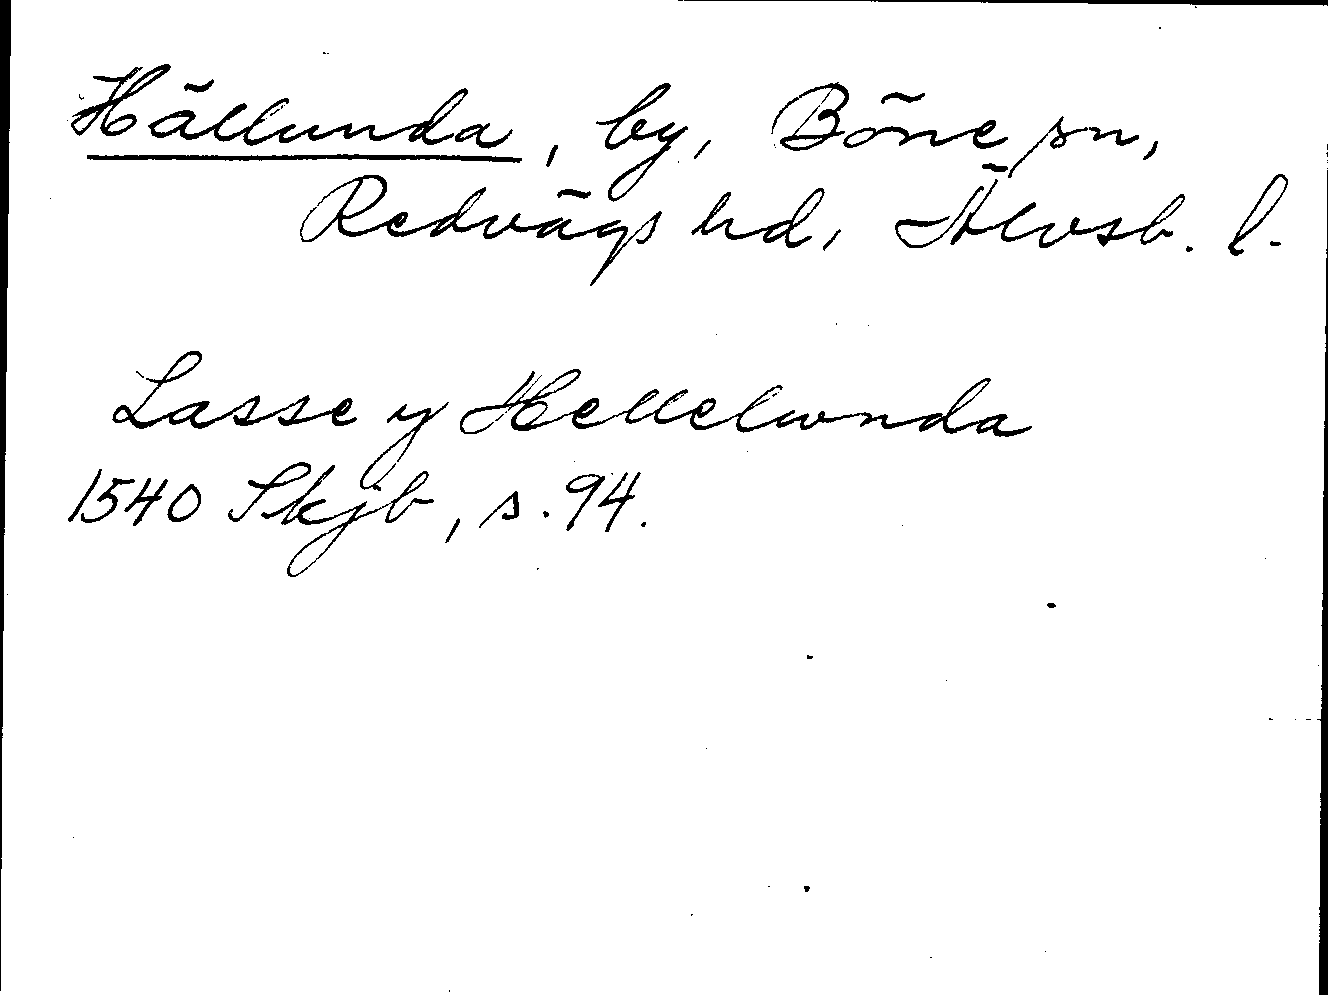 Hällunda, by, Böne sn,
Redvägs hd, Älvsb. l.
Lasse y Hellelunda
1540 Skjb, s. 94.